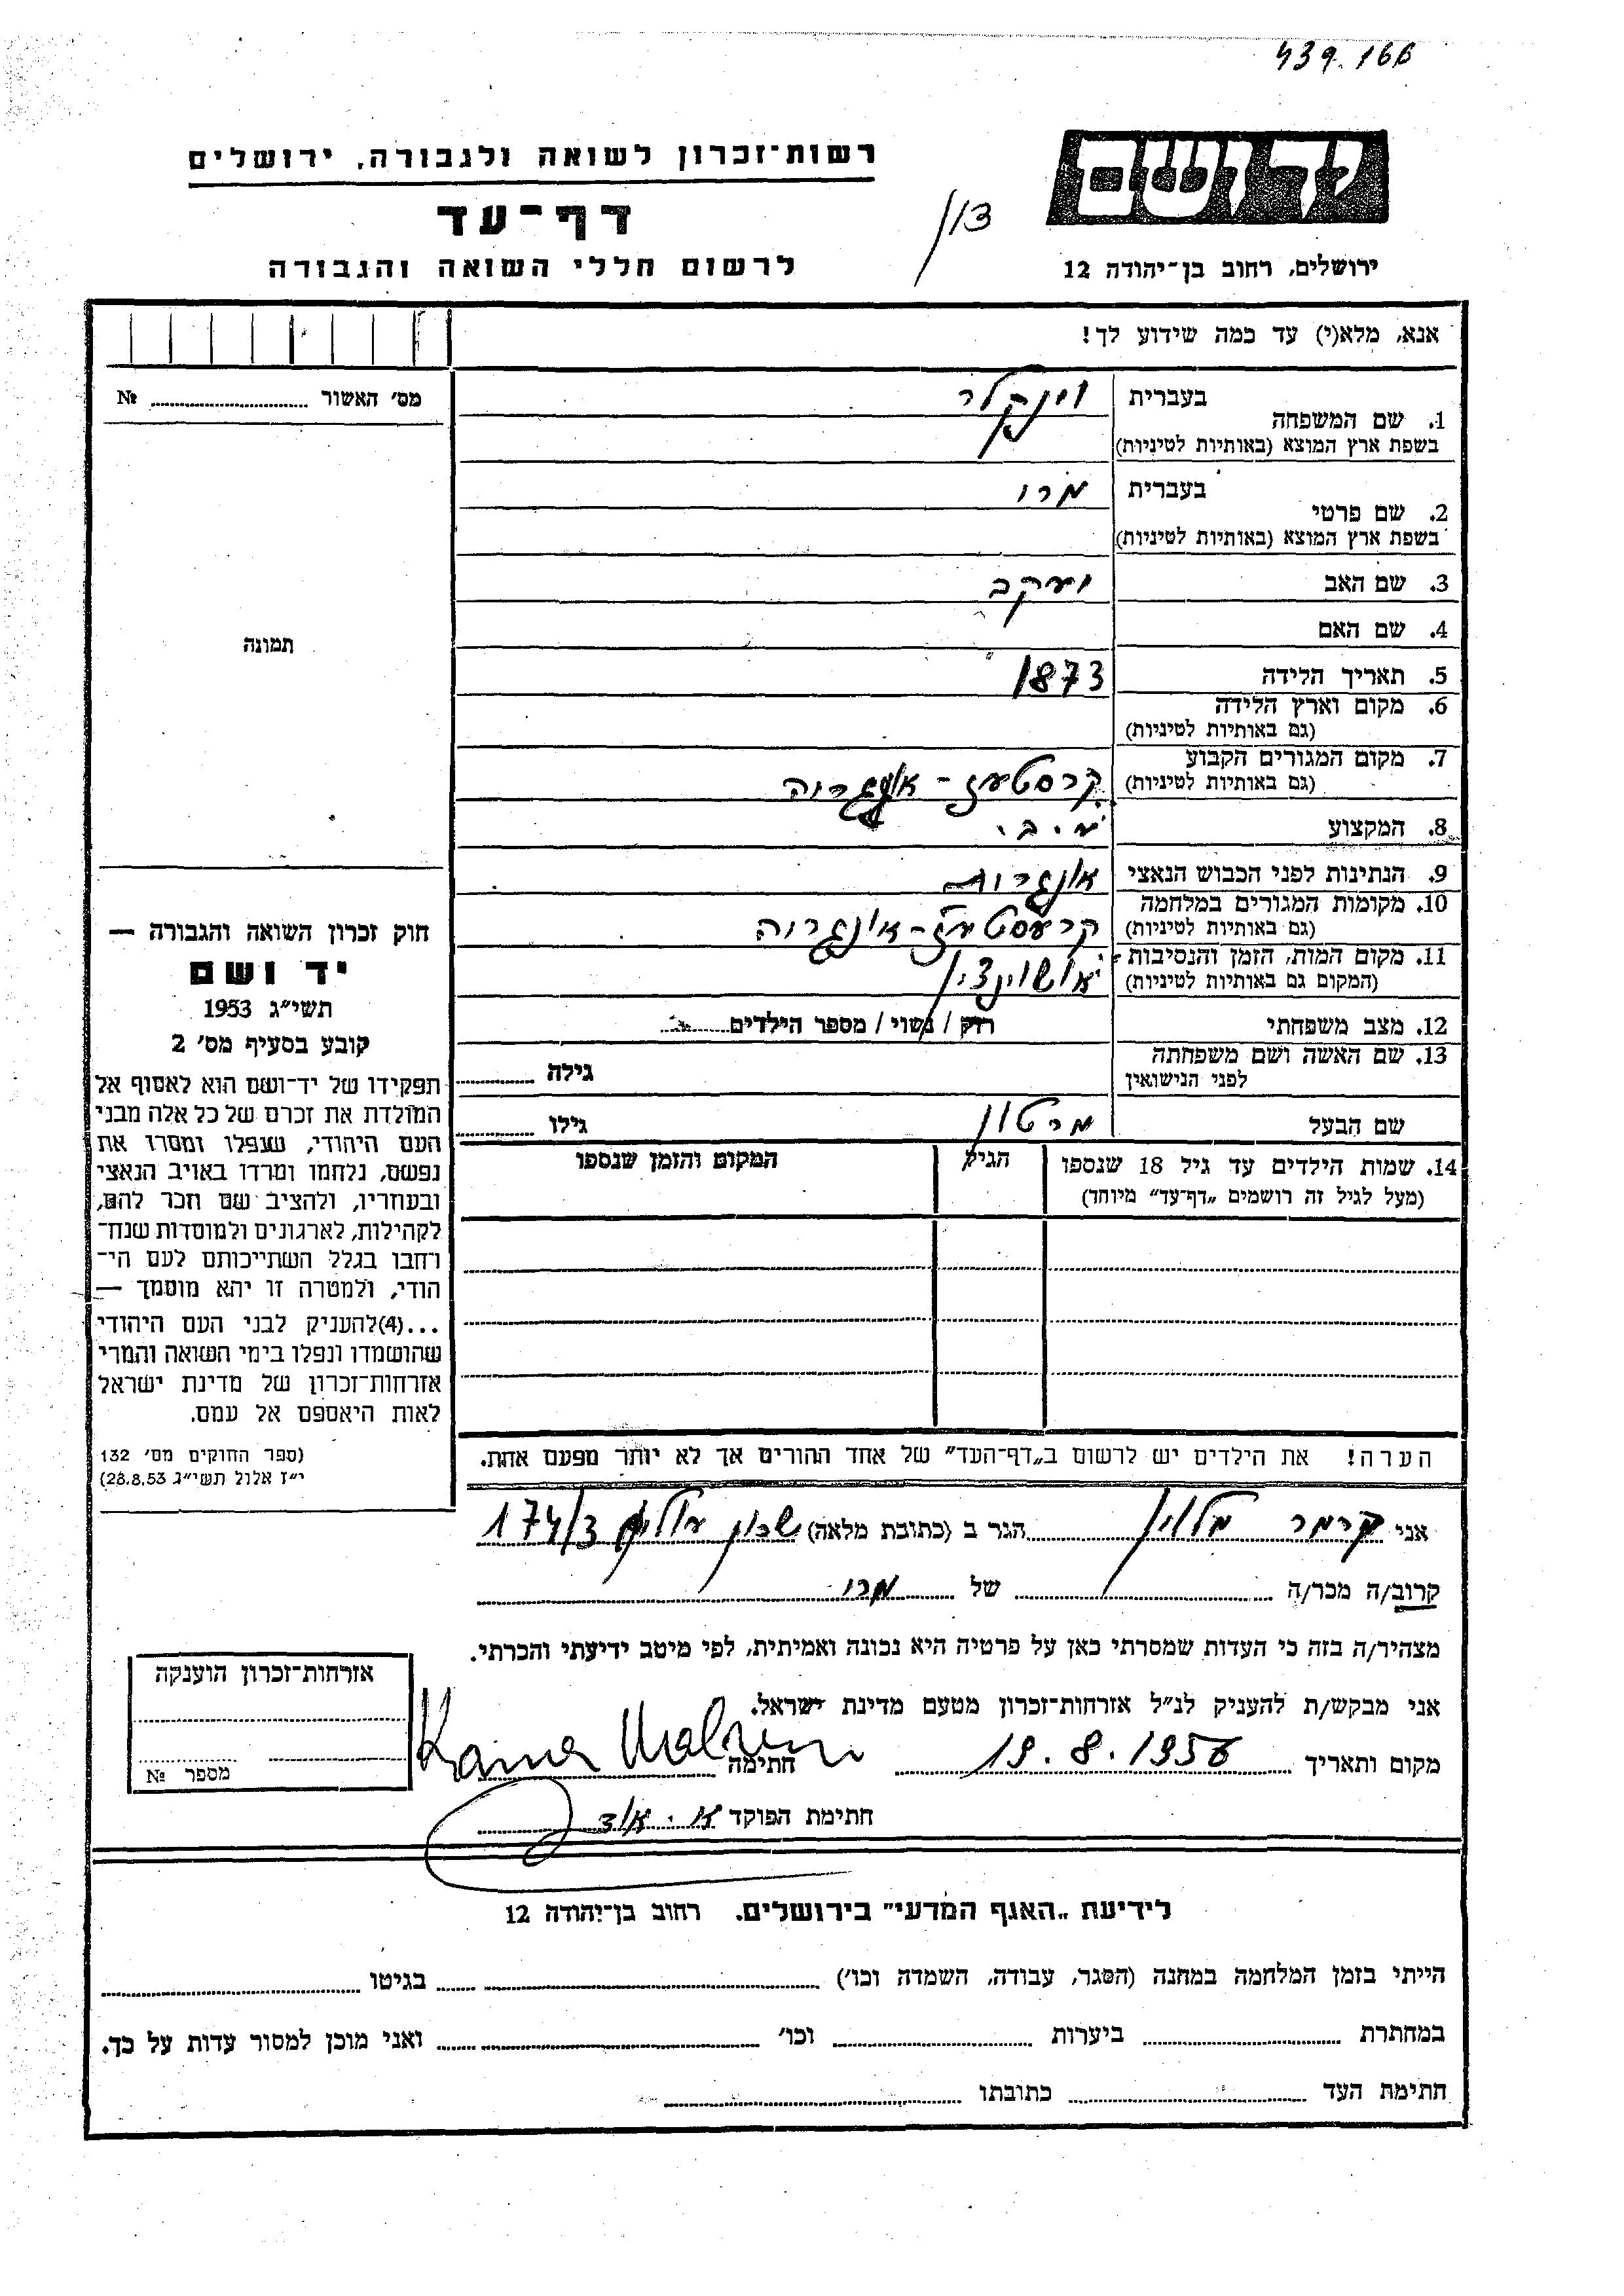 439.166
יד ושם
רשות־זכרון לשואה ולגבורה, ירושלים
דף־עד
לרשום חללי השואה והגבורה
ירושלים, רחוב בן־יהודה 12
אנא, מלא(י) עד כמה שידוע לך!
מס׳ האשור № 
1. שם המשפחה בעברית וינקלר
בשפת ארץ המוצא (באותיות לטיניות)
2. שם פרטי בעברית
בשפת ארץ המוצא (באותיות לטיניות)
3. שם האב יעקב
4. שם האם
תמונה
5. תאריך הלידה 1873
6. מקום וארץ הלידה
(גם באותיות לטיניות)
7. מקום המגורים הקבוע
(גם באותיות לטיניות)
8. המקצוע
9. הנתינות לפני הכבוש הנאצי
10. מקומות המגורים במלחמה
(גם באותיות לטיניות)
11. מקום המות, הזמן והנסיבות
(המקום גם באותיות לטיניות)
12. מצב משפחתי רוק / נשוי / מספר הילדים
13. שם האשה ושם משפחתה
לפני הנישואין גילה
שם הבעל מרטון גילו
14. שמות הילדים עד גיל 18 שנספו הגיל המקום והזמן שנספו
(מעל לגיל זה רושמים „דף־עד” מיוחד)
חוק זכרון השואה והגבורה —
יד ושם
תשי״ג 1953
קובע בסעיף מס׳ 2
תפקידו של יד־ושם הוא לאסוף אל
המולדת את זכרם של כל אלה מבני
העם היהודי, שנפלו ומסרו את
נפשם, נלחמו ומרדו באויב הנאצי
ובעוזריו, ולהציב שם וזכר להם,
לקהילות, לארגונים ולמוסדות שנח־
רחבו בגלל השתייכותם לעם הי־
הודי, ולמטרה זו יהא מוסמך —
...(4)להעניק לבני העם היהודי
שהושמדו ונפלו בימי השואה והמרי
אזרחות־זכרון של מדינת ישראל
לאות היאספם אל עמם.
(ספר החוקים מס׳ 132
י״ז אלול תשי״ג 28.8.53)
הערה! את הילדים יש לרשום ב„דף־העד” של אחד ההורים אך לא יותר מפעם אחת.
אני קרמר מלוין הגר ב (כתובת מלאה) שכון 174/3
קרוב/ה מכר/ה של
מצהיר/ה בזה כי העדות שמסרתי כאן על פרטיה היא נכונה ואמיתית, לפי מיטב ידיעתי והכרתי.
אני מבקש/ת להעניק לנ״ל אזרחות־זכרון מטעם מדינת ישראל.
מקום ותאריך 19.8.1956 חתימה
חתימת הפוקד
אזרחות־זכרון הוענקה
מספר №
לידיעת „האגף המדעי” בירושלים. רחוב בן־יהודה 12
הייתי בזמן המלחמה במחנה (הסגר, עבודה, השמדה וכו׳) בגיטו
במחתרת ביערות וכו׳ ואני מוכן למסור עדות על כך.
חתימת העד כתובתו